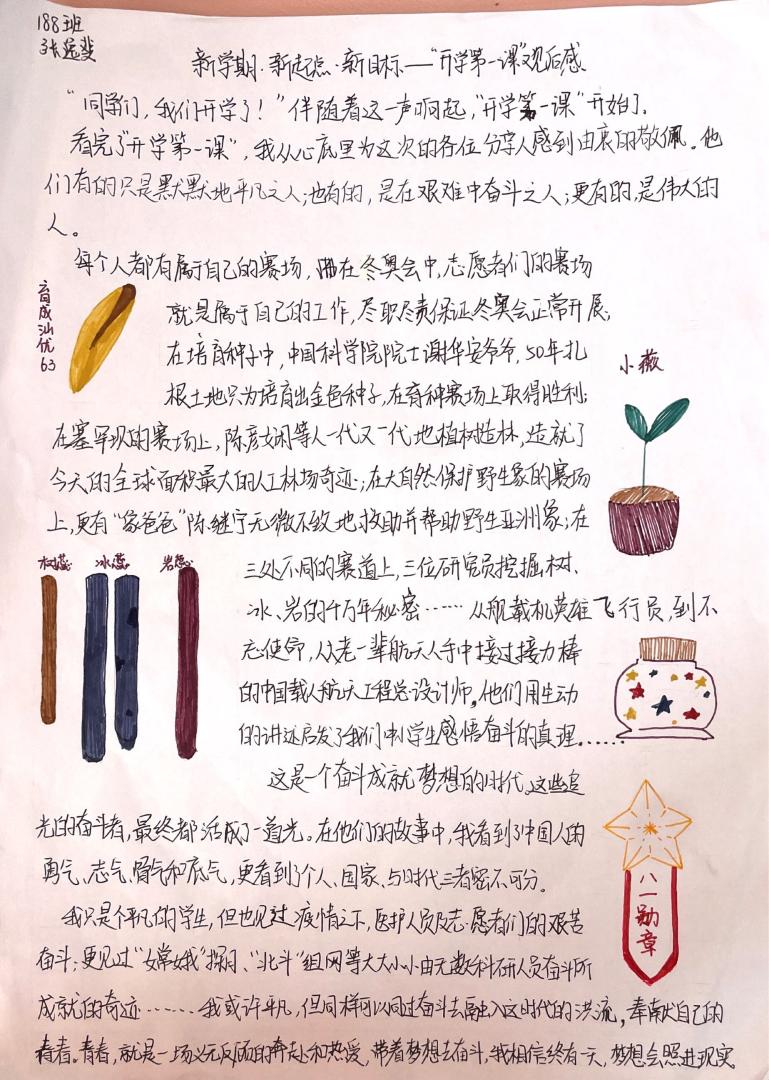 188班
张遥斐
新学期·新起点·新目标——“开学第一课”观后感
“同学们，我们开学了！”伴随着这一声响起，“开学第一课”开始了。
看完了“开学第一课”，我从心底里为这次的各位分享人感到由衷的敬佩。他
们有的只是默默地平凡之人；也有的，是在艰难中奋斗之人；更有的，是伟大的
人。
每个人都有属于自己的赛场，在冬奥会中，志愿者们的赛场
就是属于自己的工作，尽职尽责保证冬奥会正常开展；
在培育种子中，中国科学院院士谢华安爷爷，50年扎
根土地只为培育出金色种子，在育种赛场上取得胜利；
在塞罕坝的赛场上，陈彦娴等人一代又一代地植树造林，造就了
今天的全球面积最大的人工林场奇迹；在大自然保护野生象的赛场
上，更有“象爸爸”陈继宁无微不致地救助并帮助野生亚洲象；在
三处不同的赛道上，三位研究员挖掘树、
冰、岩的千万年秘密……从舰载机英雄飞行员，到不
忘使命，从老一辈航天人手中接过接力棒
的中国载人航天工程总设计师。他们用生动
的讲述启发了我们中小学生感悟奋斗的真理……
这是一个奋斗成就梦想的时代。这些追
光的奋斗者，最终都活成了一道光。在他们的故事中，我看到了中国人的
勇气、志气、骨气和底气，更看到了个人、国家、与时代三者密不可分。
我只是个平凡的学生，但也见过疫情之下，医护人员及志愿者们的艰苦
奋斗；更见过“嫦娥”探月、“北斗”组网等大大小小由无数科研人员奋斗所
成就的奇迹……我或许平凡，但同样可以同过奋斗去融入这时代的洪流，奉献自己的
青春。青春，就是一场义无反顾的奔赴和热爱，带着梦想去奋斗，我相信终有一天，梦想会照进现实。
育成汕优63
小薇
树蕊 冰蕊 岩蕊
八一勋章